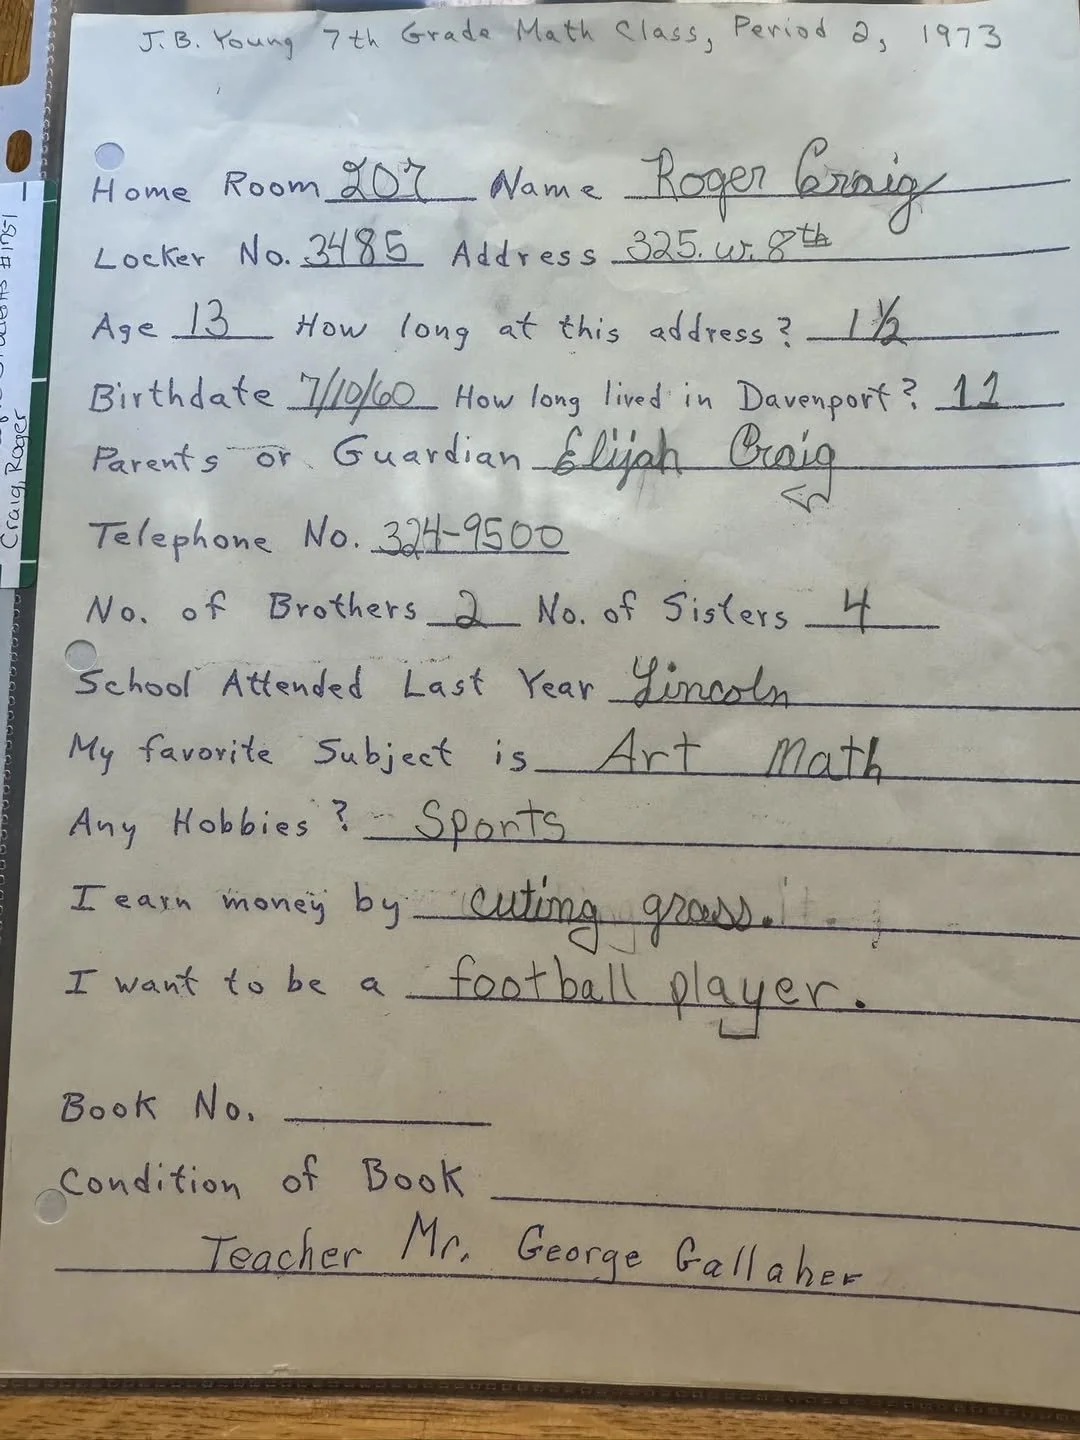 J.B. Young 7th Grade Math Class, Period 2, 1973
Home Room 207 Name Roger Craig
Locker No. 3485 Address 325. W. 8th
Age 13 How long at this address? 1 1/2
Birthdate 7/10/60 How long lived in Davenport? 11
Parents or Guardian Elijah Craig
Telephone No. 324-9500
No. of Brothers 2 No. of Sisters 4
School Attended Last Year Lincoln
My favorite Subject is Art Math
Any Hobbies? Sports
I earn money by cuting grass.
I want to be a football player.
Book No.
Condition of Book
Teacher Mr. George Gallaher
#1751
Craig, Roger